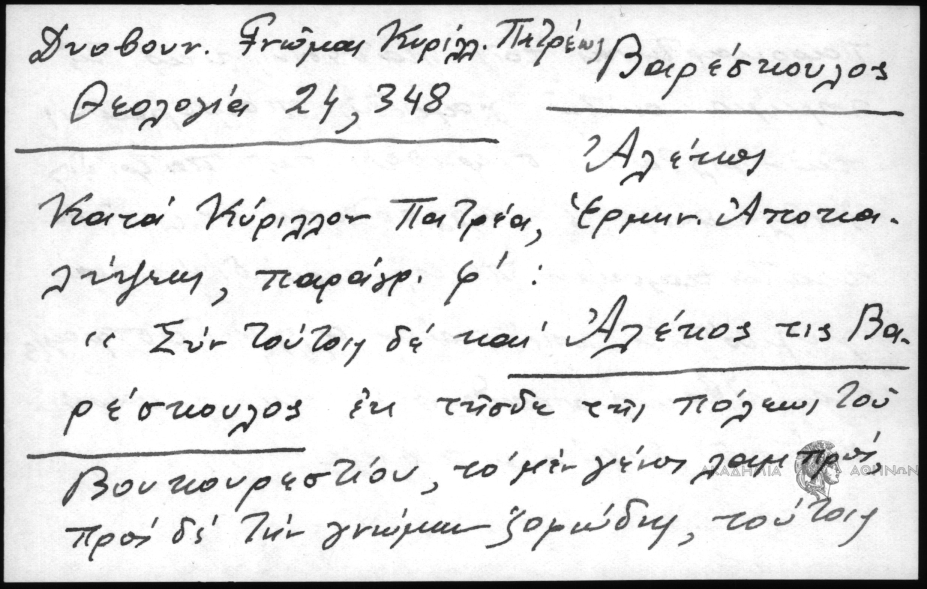 Δυοβουν. Γνῶμαι Κυρίλλ. Πατρέως
Θεολογία 24, 348
Βαρέσκουλος
Ἀλέκος
Κατά Κύριλλον Πατρέα, Ἑρμην. Ἀποκα-
λύψεως, παράγρ. φ´ :
" Σύν τούτοις δέ καί Ἀλέκος τις Βα-
ρέσκουλος ἐκ τῆσδε τῆς πόλεως τοῦ
Βουκουρεστίου, τό μέν γένος λαμπρός,
πρός δέ τήν γνώμην ζοφώδης, τούτοις
ΑΚΑΔΗΜΙΑ ΑΘΗΝΩΝ